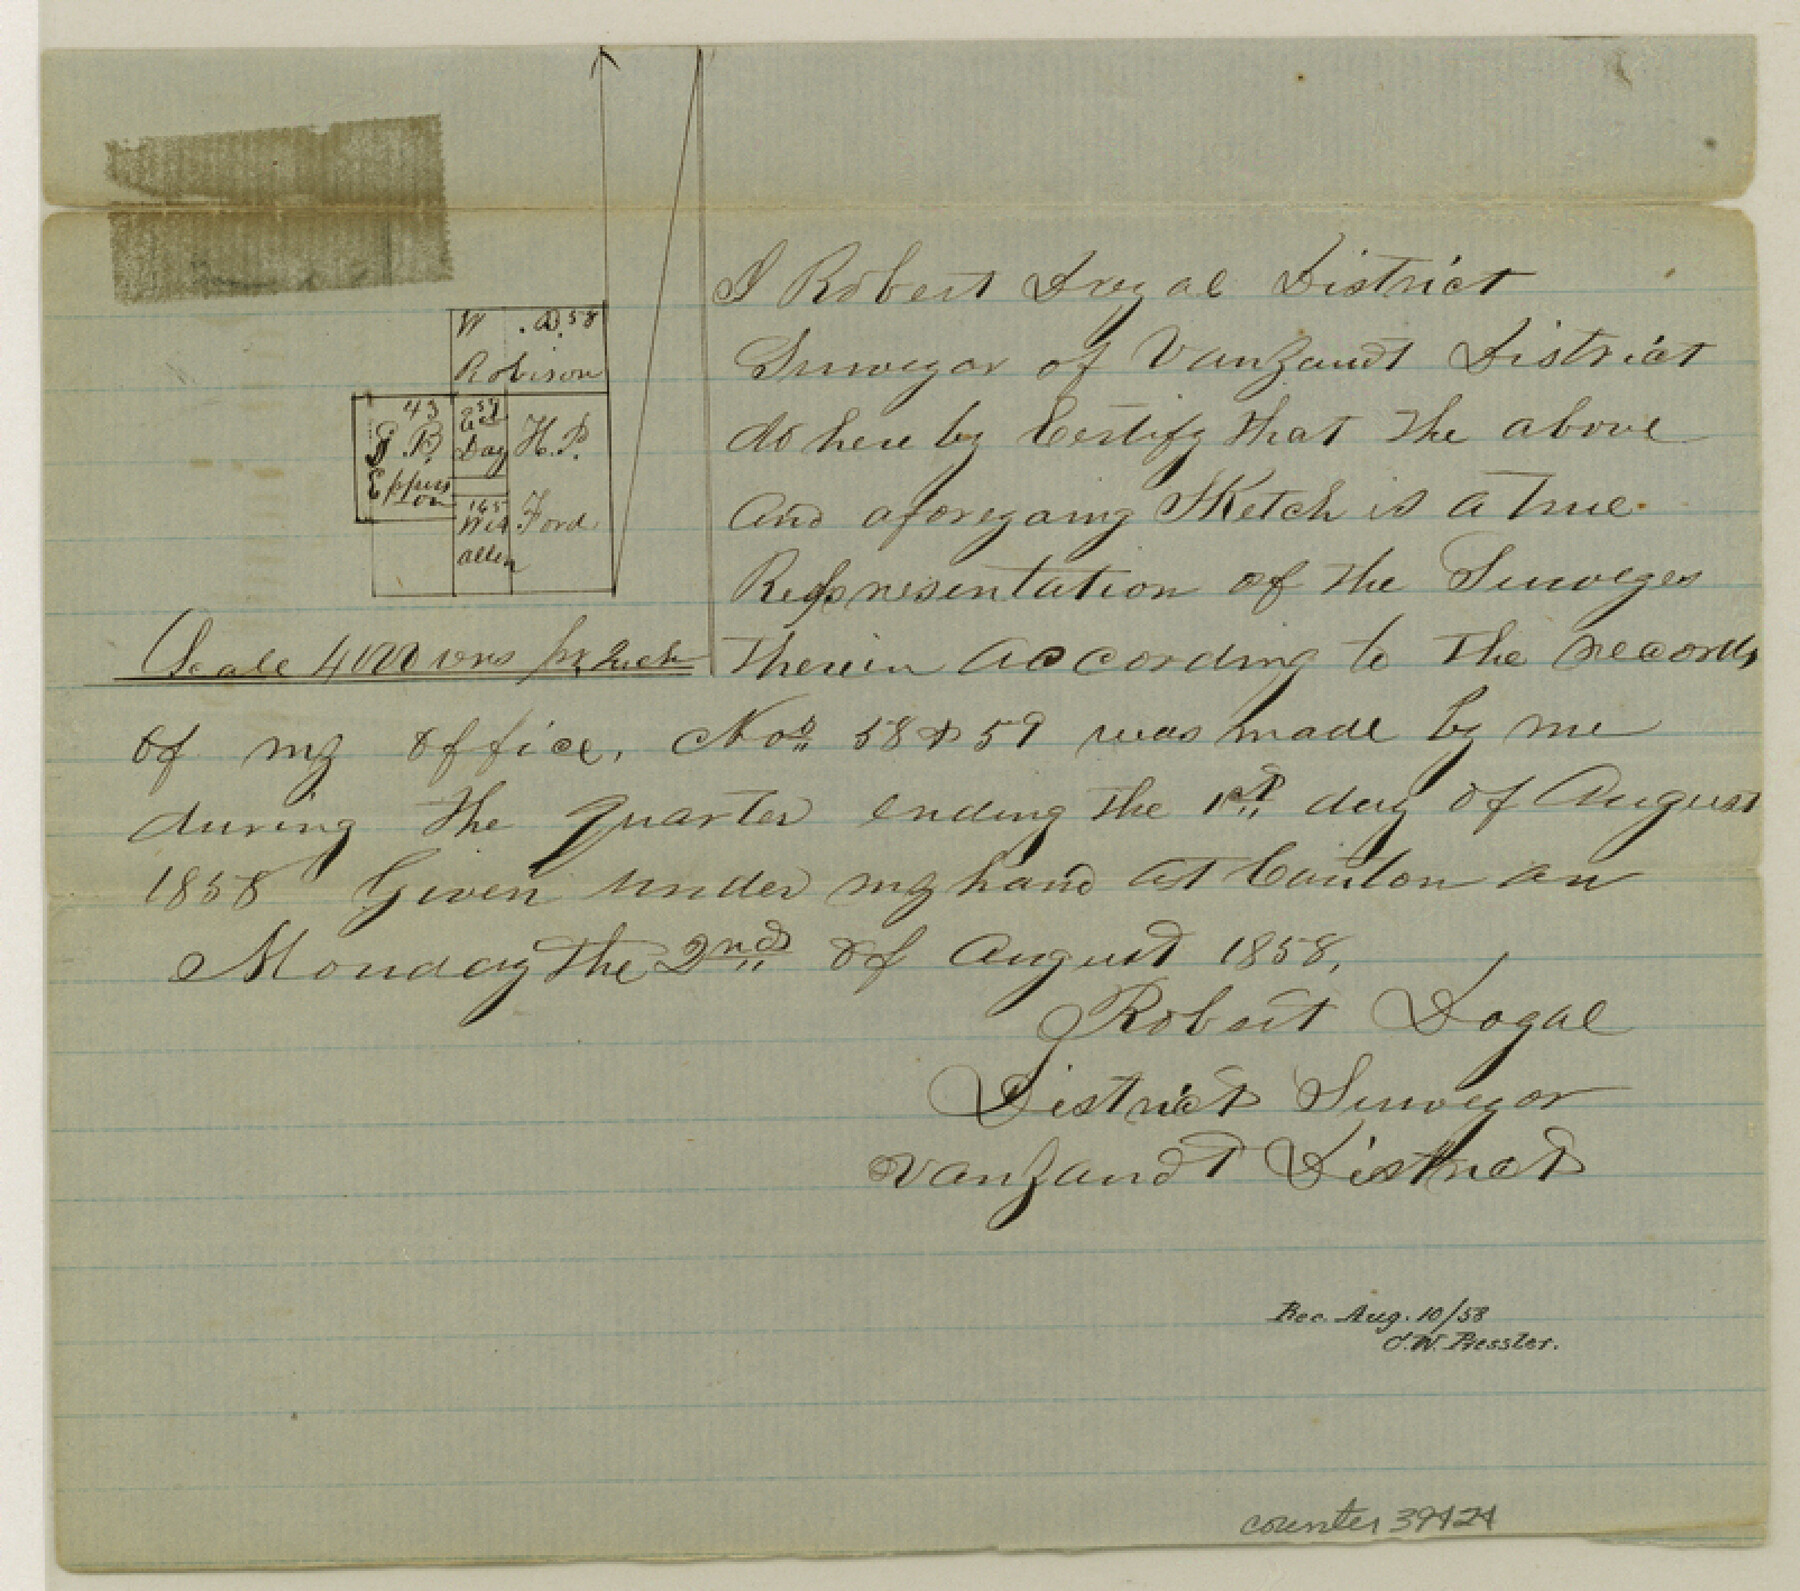 W . D. 58
Robison
43
J. B.
Epperson
59
Day
H. P.
Ford
165
Wit
allen
Scale 4000 vrs pr. Inch
I Robert Dogal District
Surveyor of Vanzandt District
do here by Certify that the above
and aforegoing Sketch is a True
Representation of the Surveyes
therein according to the records
of my office, Nos 58 & 59 was made by me
during the quarter ending the 1st day of August
1858 Given under my hand at Canton on
Monday the 2nd of August 1858,
Robert Dogal
District Surveyor
Vanzandt District
Rec. Aug. 10/58
C. W. Pressler.
counter 39424